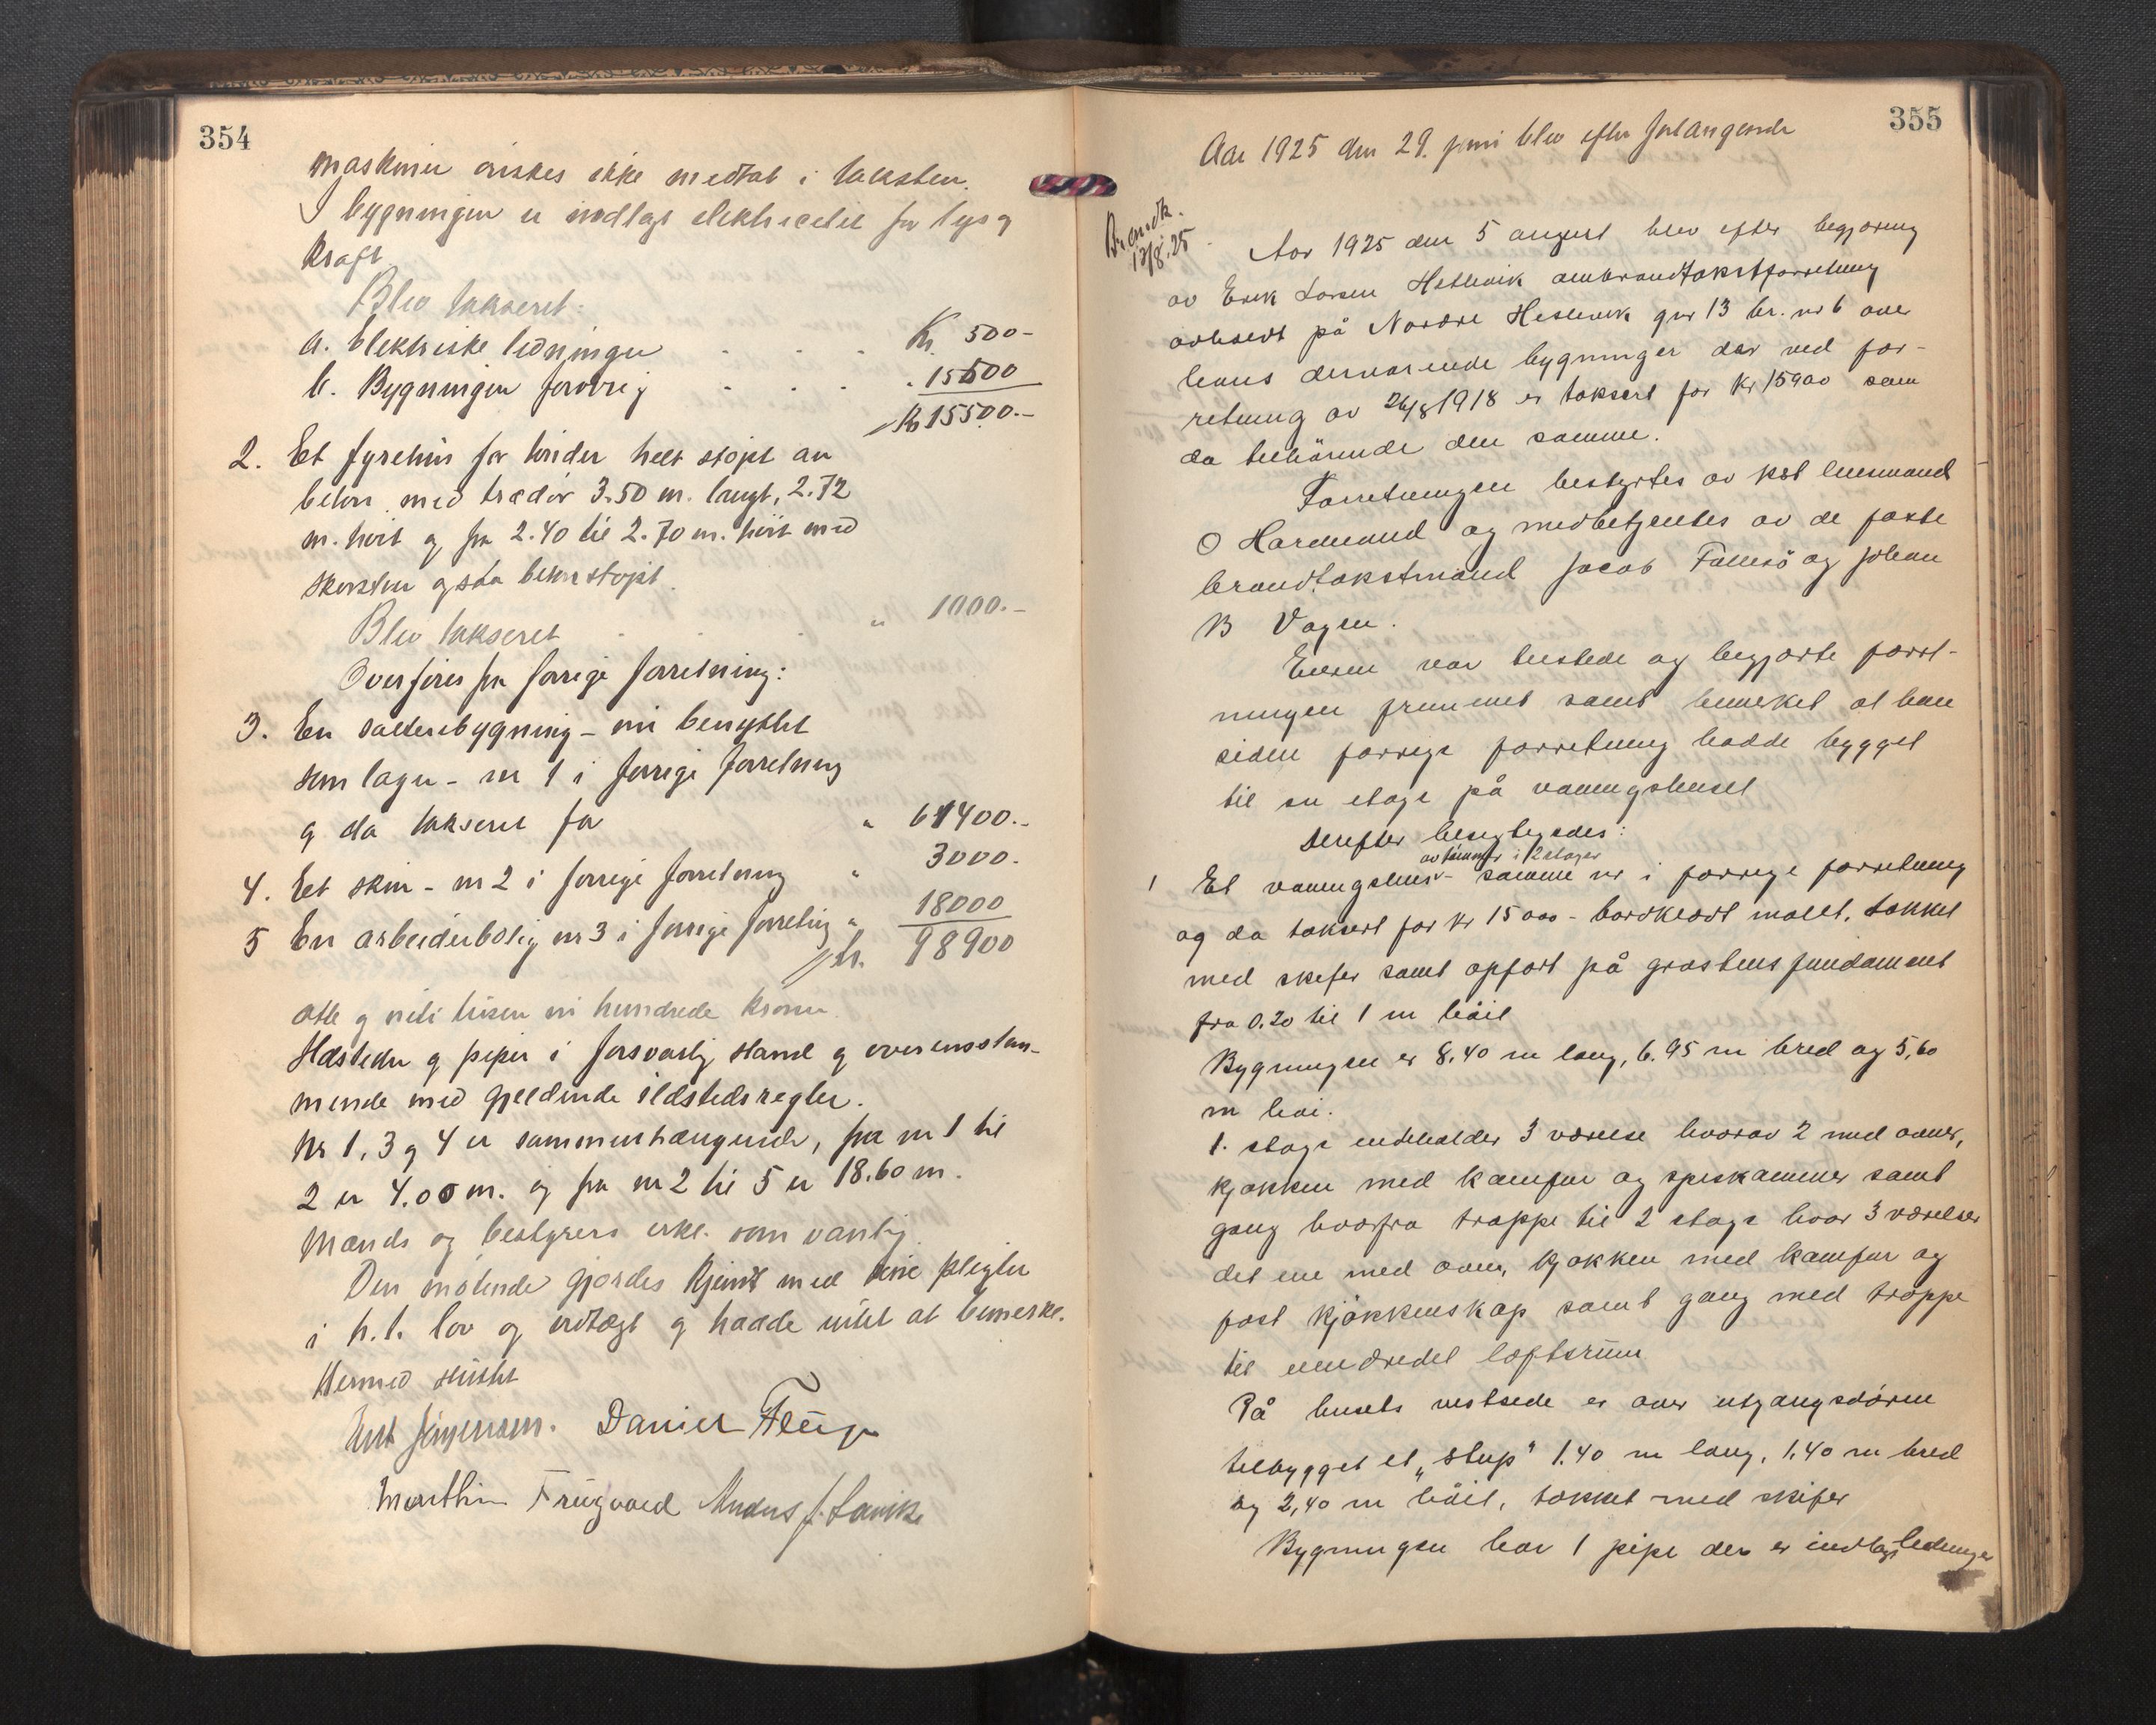 354
maskiner önskes ikke medtat i taksten.
I bygningen er indlagt elektricitet for lys og
kraft
Blev takseret:
a. Elektriske ledninger . . . Kr. 500-
b. Bygningen forövrig . . . . 15000
Kr 15500.-
2. Et fyrehus for tönder helt stöpt av
beton med trædör 3.50 m. langt, 2.72
m. bredt og fra 2.40 til 2.70 m. höit med
skorsten også betonstöpt.
Blev takseret . . . " 1000.-
Overföres fra forrige forretning:
3. En salteribygning - nu benyttet
som lager - nr 1 i forrige forretning
og da takseret for " 61400.-
4. Et skur - nr 2 i forrige forretning " 3000.
5 En arbeiderbolig nr 3 i forrige forretning " 18000
Kr. 98900
otte og niti tusen ni hundrede kroner.
Ildsteder og piper i forsvarlig stand og overensstem-
mende med gjeldende ildstedsregler.
Nr 1, 3 og 4 er sammenhængende, fra nr 1 til
2 er 4.00 m. og fra nr 2 til 5 er 18.60 m.
Mænds og bestyrers erkl. som vanlig.
Den mötende gjordes kjent med sine pligter
i h.t. lov og vedtægt og hadde intet at bemerke.
Hermed sluttet
Daniel
Marthin Anders J.
355
Aar 1925 den 29. juni blev efter forlangende
Brandk.
13/8.25
Aar 1925 den 5 august blev efter begjæring
av Erik Larsen Hetlevik ombrandtakstforretning
avholdt på Nordre Hetlevik gnr 13 br. nr 6 over
hans derværende bygninger der ved for-
retning av 26/8 1918 er taksert for Kr 15900 som
da tilhörende den samme.
Forretningen bestyrtes av kst lensmand
O Hardmand og medbetjentes av de faste
brandtakstmænd Jacob og Johan
B Vågen.
Eieren var tilstede og begjærte forret-
ningen fremmet samt bemerket at han
siden forrige forretning hadde bygget
til en etage på vaningshuset
Derefter besigtigedes:
av tömmer i 2 etager
1 Et vaningshus - samme nr i forrige forretning
og da taksert for kr 15000 - bordklædt malet, tækket
med skifer samt opfört på gråstens fundament
fra 0.20 til 1 m höit
Bygningen er 8.40 m lang, 6.95 m bred og 5,60
m höi.
1. etage indeholder 3 værelse hvorav 2 med ovner,
kjökken med komfur og spiskammer samt
gang hvorfra trappe til 2 etage hvor 3 værelser
det ene med ovn, kjökken med komfur og
fast kjökkenskap samt gang med trappe
til uinredet loftsrum
På husets vestside er over utgangsdören
tilbygget et „slup" 1.40 m lang, 1.40 m bred
og 2,40 m höit, tækket med skifer
Bygningen har 1 pipe der er indlagt ledninger